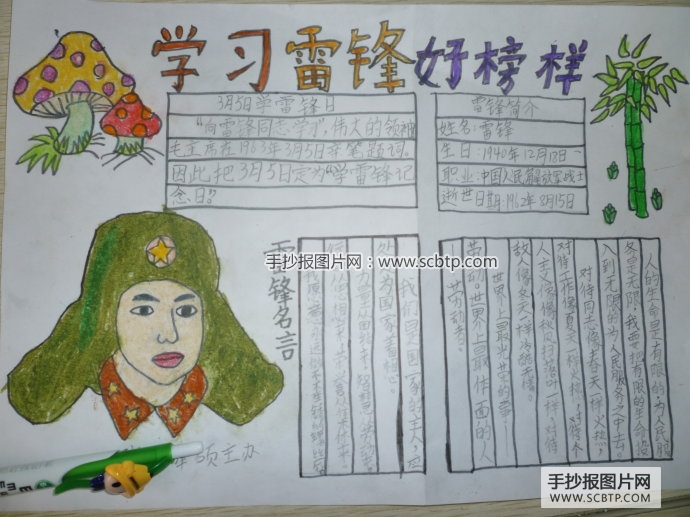 学习雷锋好榜样
3月5日学雷锋日
“向雷锋同志学习”，伟大的领袖
毛主席在1963年3月5日亲笔题词。
因此把3月5日定为“学雷锋记
念日”。
雷锋简介
姓名：雷锋
生日：1940年12月18日
职业：中国人民解放军战士
逝世日期1962年8月15日
手抄报图片网：www.scbtp.com
雷锋名言
人的生命是有限的，为人民服
务是无限，我要把有限的生命投
入到无限的为人民服务之中去。
对待同志像春天一样火热，
对待工作像夏天一样火热，对待个
人主义像秋风扫落叶一样，对待
敌人像冬天一样冷酷无情。
世界上最光荣的事——
劳动。世界上最体面的人
——劳动者。
我们是国家的主人，应
处处为国家着想。
主办
手抄报图片网
WWW.SCBTP.COM